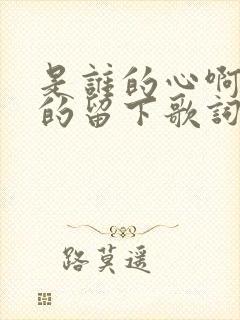 是誰的心啊
的留下歌詞
路莫遥